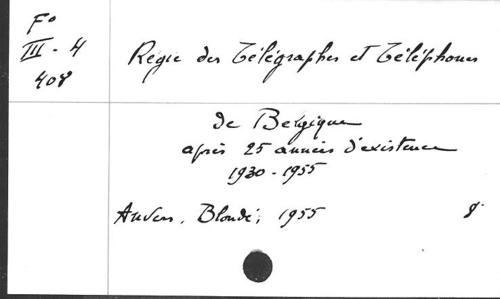 Fo
III - 4
408
Régie des Télégraphes et Téléphones
de Belgique
après 25 années d'existence
1930 - 1955
Anvers, Blondé, 1955